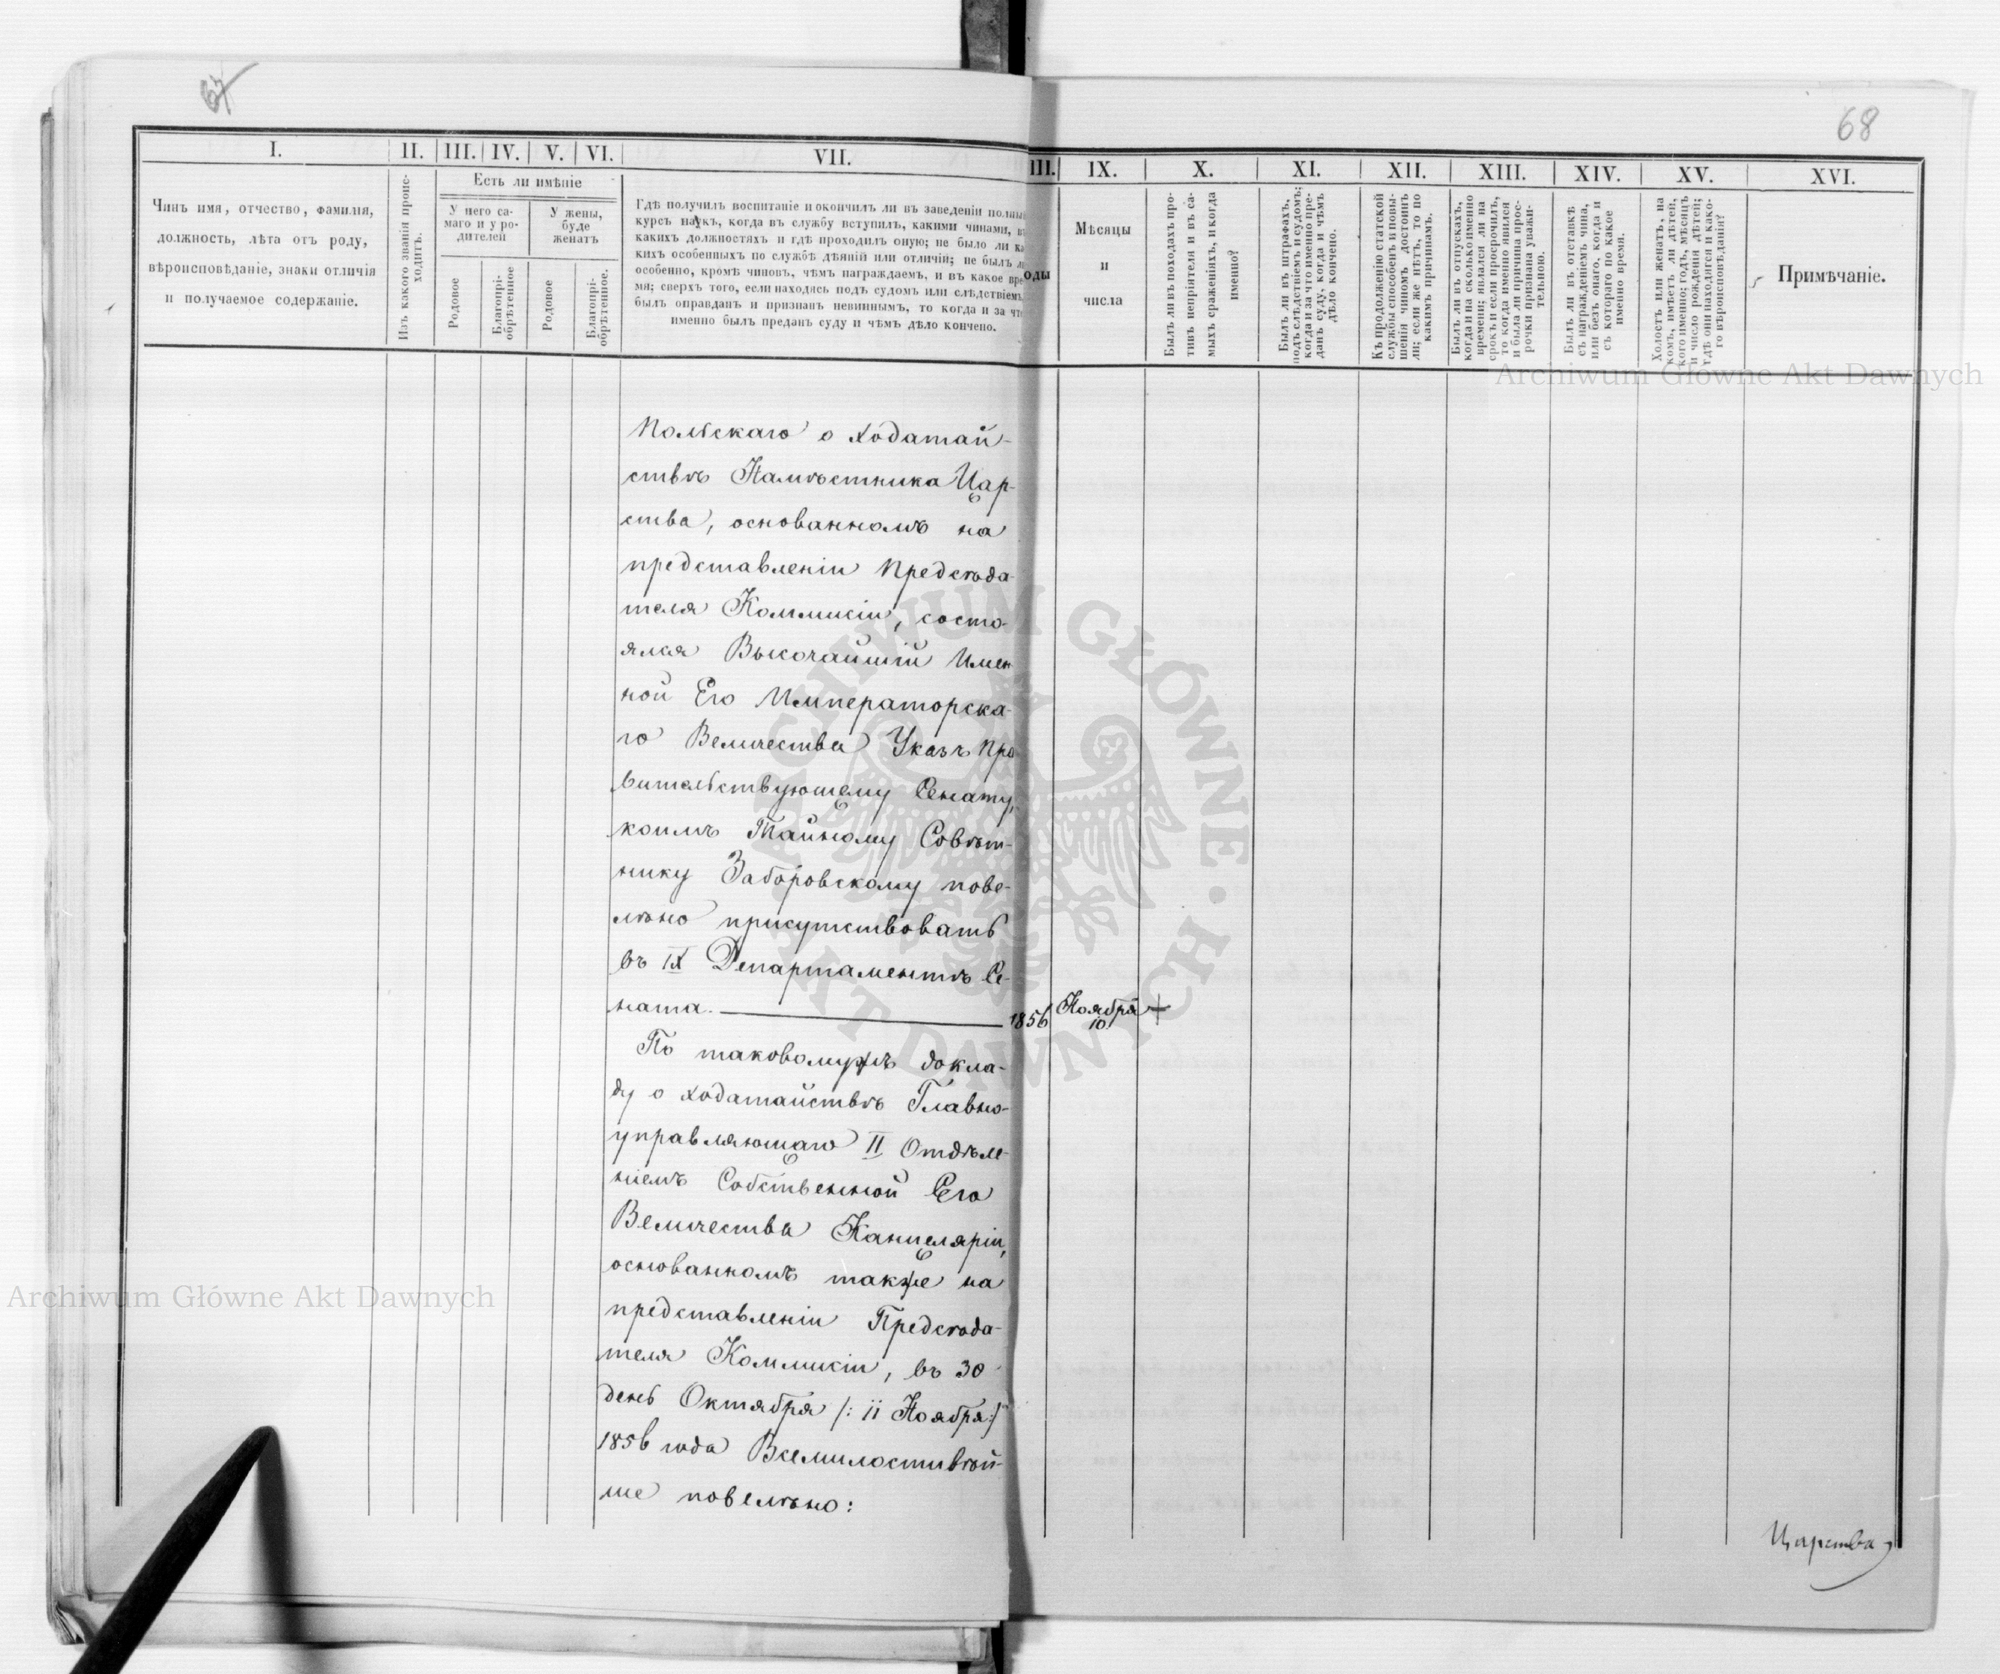 67
68
I.
II.
III.
IV.
V.
VI.
VII.
III.
IX.
X.
XI.
XII.
XIII.
XIV.
XV.
XVI.
Чинъ имя, отчество, фамилія,
должность, лѣта отъ роду,
вѣроисповѣданіе, знаки отличія
и получаемое содержаніе.
Изъ какого званія проис-
ходитъ.
Есть ли имѣніе
У него са-
маго и у ро-
дителей
У жены,
буде
женатъ
Родовое
Благопрі-
обрѣтенное
Родовое
Благопрі-
обрѣтенное.
Гдѣ получилъ воспитаніе и окончилъ ли въ заведеніи полный
курсъ наукъ, когда въ службу вступилъ, какими чинами, въ
какихъ должностяхъ и гдѣ проходилъ оную; не было ли ка
кихъ особенныхъ по службѣ дѣяній или отличій; не былъ ли
особенно, кромѣ чиновъ, чѣмъ награждаемъ, и въ какое вре
мя; сверхъ того, если находясь подъ судомъ или слѣдствіемъ,
былъ оправданъ и признанъ невиннымъ, то когда и за что
именно былъ преданъ суду и чѣмъ дѣло кончено.
оды
Мѣсяцы
и
числа
Былъ ли въ походахъ про-
тивъ непріятеля и въ са-
мыхъ сраженіяхъ, и когда
именно?
Былъ ли въ штрафахъ,
подъ слѣдствіемъ и судомъ;
когда и за что именно пре-
данъ суду, когда и чѣмъ
дѣло кончено.
Къ продолженію статской
службы способенъ и повы-
шенія чиномъ достоинъ
ли; если же нѣтъ, то по
какимъ причинамъ.
Былъ ли въ отпускахъ,
когда и на сколько именно
времени; явился ли на
срокъ и если просрочилъ,
то когда именно явился
и была ли причина прос-
рочки признана уважи-
тельною.
Былъ ли въ отставкѣ
съ награжденіемъ чина,
или безъ онаго, когда и
съ котораго по какое
именно время.
Холостъ или женатъ, на
комъ, имѣетъ ли дѣтей,
кого именно; годъ, мѣсяцъ
и число рожденія дѣтей;
гдѣ они находятся и како-
го вѣроисповѣданія?
Примѣчаніе.
Польскаго о ходатай-
ствѣ Намѣстника Цар-
ства, основанномъ на
представленіи Предсѣда
теля Коммисіи, состо-
ялся Высочайшій Имен
ной Его Императорска-
го Величества Указъ Пра
вительствующему Сенату,
коимъ Тайному Совѣт-
нику Заборовскому пове-
лѣно присутствовать
въ IX Департаментѣ Се-
ната.
1856
Ноября
10.
По таковомужъ докла-
ду о ходатайствѣ Главно-
управляющаго II Отдѣле-
ніемъ Собственной Его
Величества Канцеляріи,
основанномъ также на
представленіи Предсѣда-
теля Коммисіи, въ 30
день Октября /: 11 Ноября :/
1856 года Всемилостивѣй-
ше повелѣно:
Царства
Archiwum Główne Akt Dawnych
Archiwum Główne Akt Dawnych
ARCHIWUM GŁÓWNE · AKT DAWNYCH